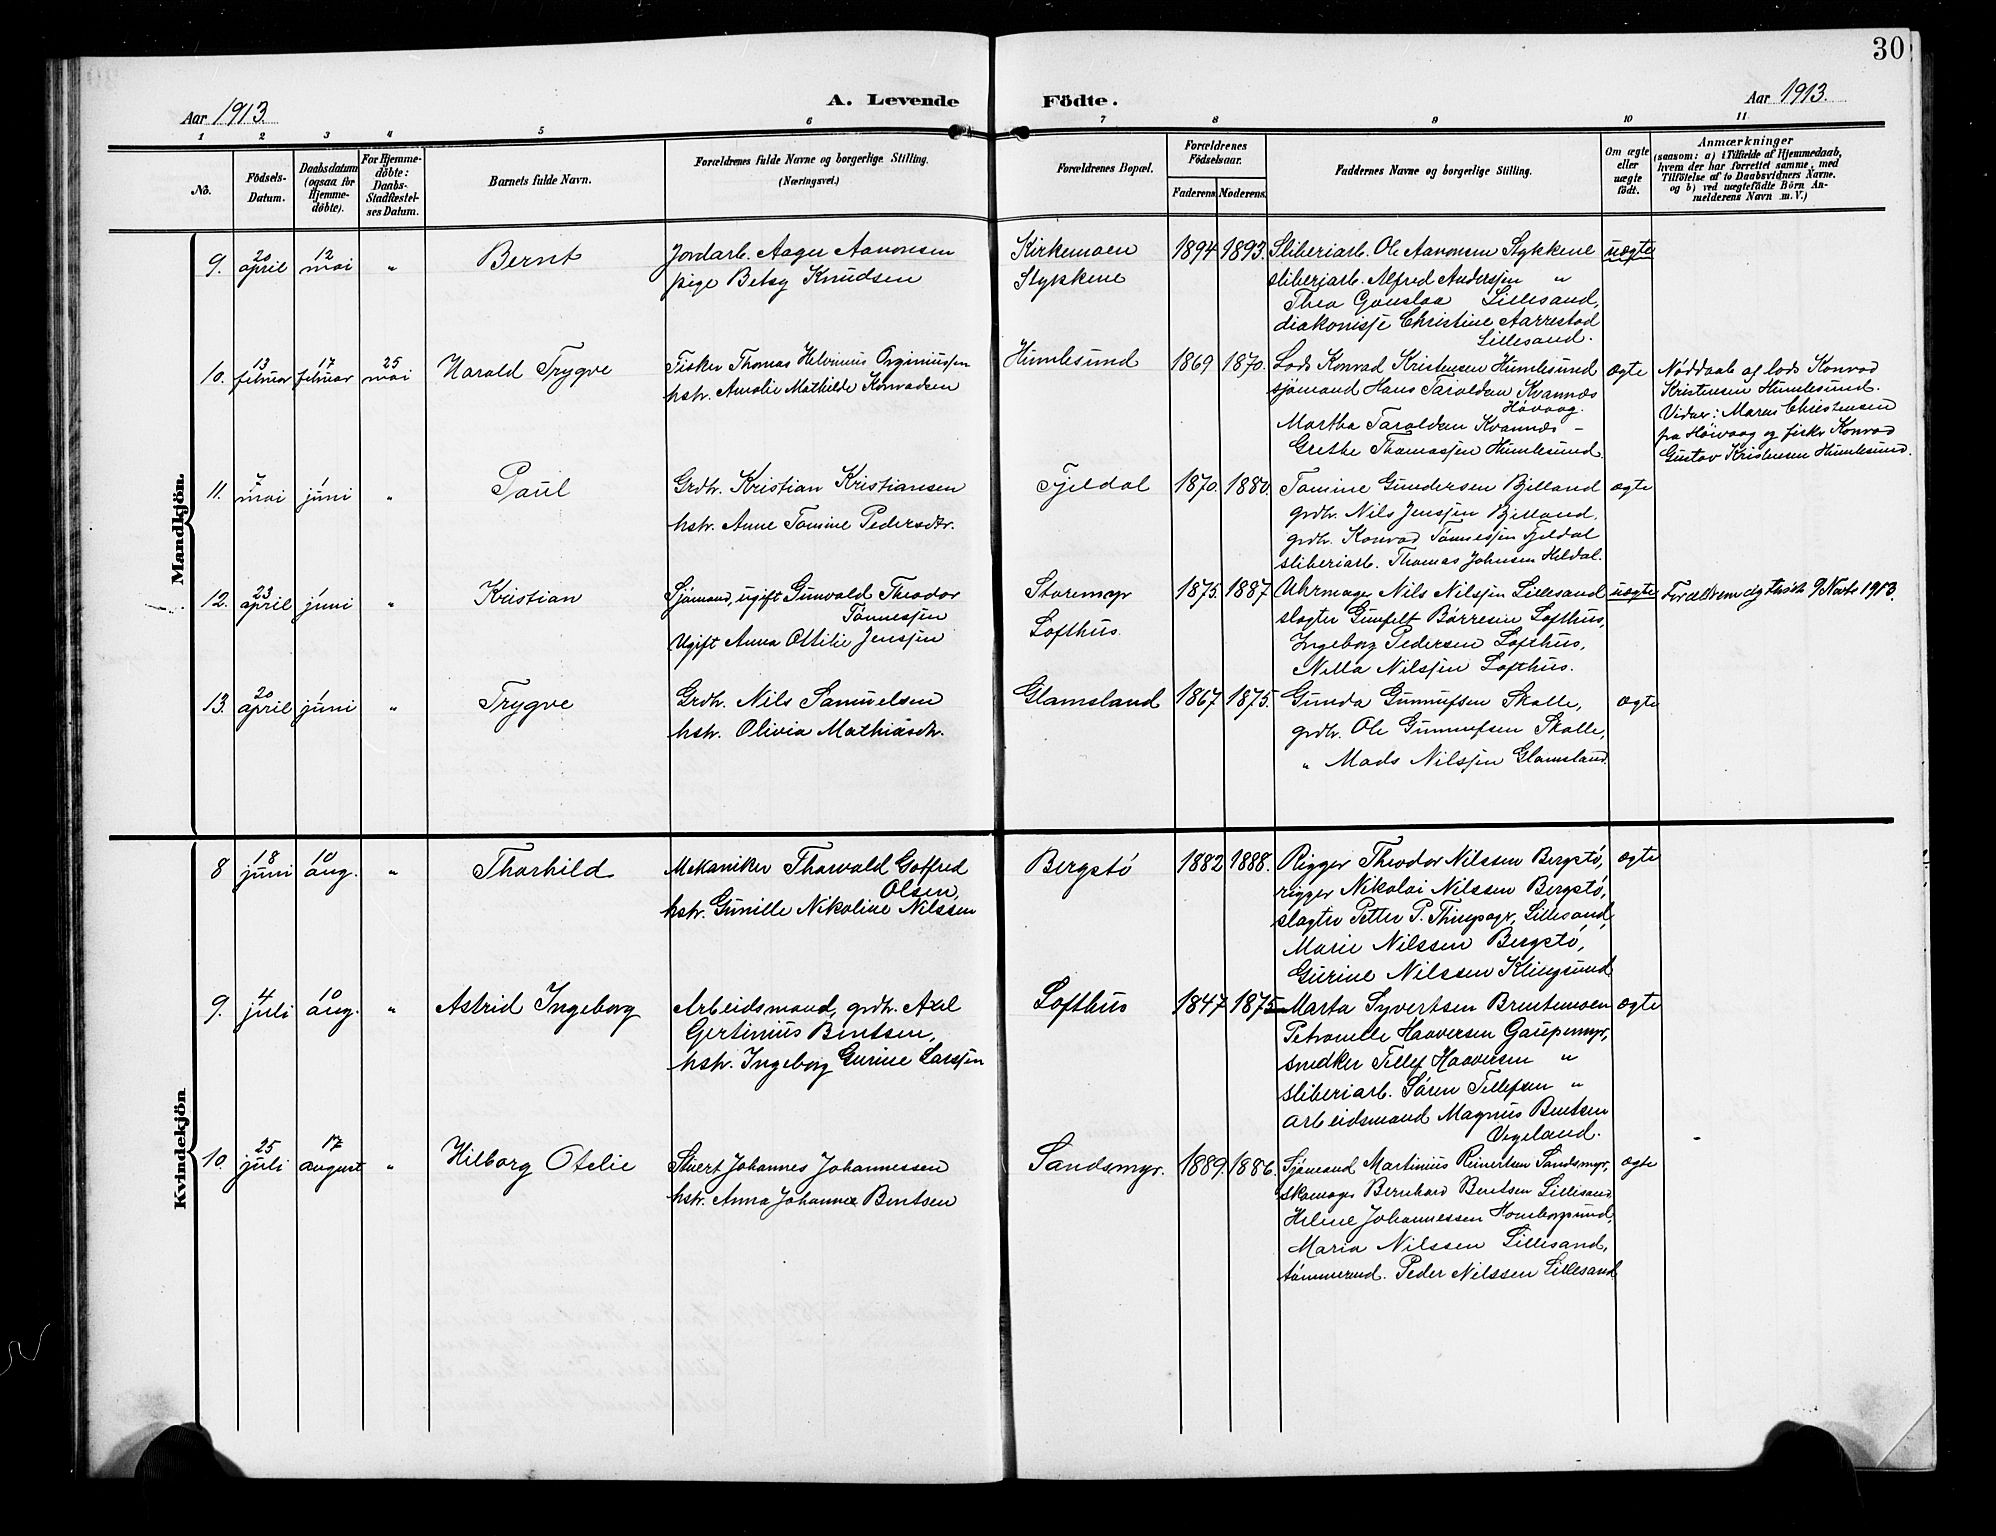 30
Aar 1913.
A. Levende Födte.
Aar 1913.
1 2 3 4 5 6 7 8 9 10 11
No.
Födsels-Datum.
Daabsdatum (ogsaa for Hjemme-døbte).
For Hjemme-døbte: Daabs-Stadfæstel-ses Datum.
Barnets fulde Navn.
Forældrenes fulde Navne og borgerlige Stilling.
(Næringsvei.)
Forældrenes Bopæl.
Forældrenes Fødselsaar.
Faderens Moderens.
Faddernes Navne og borgerlige Stilling.
Om ægte eller uægte født.
Anmærkninger
(saasom: a) i Tilfælde af Hjemmedaab,
hvem der har forrettet samme, med
Tilföielse af to Daabsvidners Navne.
og b) ved uægtefødte Börn An-
melderens Navn m. V.)
Mandkjön.
9. 20 april 12 mai " Bernt
Jordarb. Aager Aanonsen
pige Betsy Knudsen
Kirkemoen
Stykkene
1894 1893.
Sliberiarb. Ole Aanonsen Stykkene
sliberiarb. Alfred Anderssen "
Thea Lillesand,
diakonisse Christine Aarrestad
Lillesand.
uægte
10. 13 februar 17 februar 25 mai Harald Trygve
Fisker Thomas Helvinius Orginiussen
hstr. Amalie Mathilde Konradsen
Humlesund
1869 1870.
Lods Konrad Kristensen Humlesund
sjømand Hans Taraldsen Kvannæs
Høvaag.
Martha Taraldsen Kvannæs –
Grethe Thomassen Humlesund.
ægte
Nøddøbt af lods Konrad
Kristensen Humlesund.
Vidner: Maren Christensen
fra Høivaag og fisker Konrad
Gustav Kristensen Humlesund.
11. 7 mai 1 juni " Paul
Grdbr. Kristian Kristiansen
hstr. Anne Tomine Pedersdtr.
Fjeldal
1870. 1880.
Tomine Gundersen Bjelland
grdbr. Nils Jenssen Bjelland,
grdbr. Konrad Tønnessen Fjeldal
sliberiarb. Thomas Johnsen Heldal.
ægte
12. 23 april 1 juni " Kristian
Sjømand, ugift Gunvald Theodor
Tønnessen
Ugift Anna Ottilie Jenssen
Storemyr
Lofthus.
1875. 1887
Uhrmager Nils Nilssen Lillesand
slagter Gunfelt Børresen Lofthus,
Ingeborg Pedersen Lofthus,
Nilla Nilssen Lofthus.
uægte
Forældrene ægteviet 9 Novbr 1913.
13. 20 april 1 juni " Trygve
Grdbr. Nils Samuelsen
hstr. Olivia Mathiasdtr.
Glamsland
1867 1875.
Gunda Gunnufsen Skalle,
grdbr. Ole Gunnufsen Skalle,
" Mads Nilssen Glamsland.
ægte
Kvindekjön
8 18 juni 10 aug. " Thorhild
Mekaniker Thorvald Gotfred
Olsen,
hstr. Gunille Nikoline Nilssen
Bergstø
1882 1888.
Rigger Theodor Nilssen Bergstø,
rigger Nikolai Nilssen Bergstø,
slagter Petter P. Lillesand,
Marie Nilssen Bergstø,
Gurine Nilssen Klingsund
ægte
9. 4 juli 10 aug. " Astrid Ingeborg
Arbeidsmand, grdbr. Axel
Gertinius Bentsen,
hstr. Ingeborg Gurine Larssen
Lofthus
1847 1875
Marta Syvertsen Brentemoen
Petronelle Haaversen Gaupemyr,
snedker Tellef Haaversen "
sliberiarb. Søren Tellefsen "
arbeidsmand Magnus Bentsen
Vegeland.
ægte
10. 25 juli 17 august " Hilborg Otelie
Stuert Johannes Johannessen
hstr. Anna Johanne Bentsen
Sandsmyr.
1889 1886.
Sjømand Martinius Reinertsen Sandsmyr,
skomager Bernhard Bentsen Lillesand
Helene Johannessen Homborsund,
Maria Nilssen Lillesand,
tømmermd. Peder Nilssen Lillesand
ægte